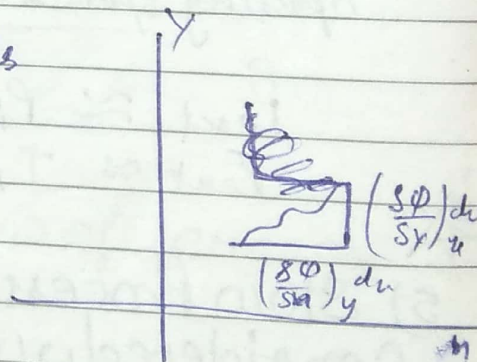 Y
s
(δφ/δy)ₓ dy
(δφ/δx)_y dx
x